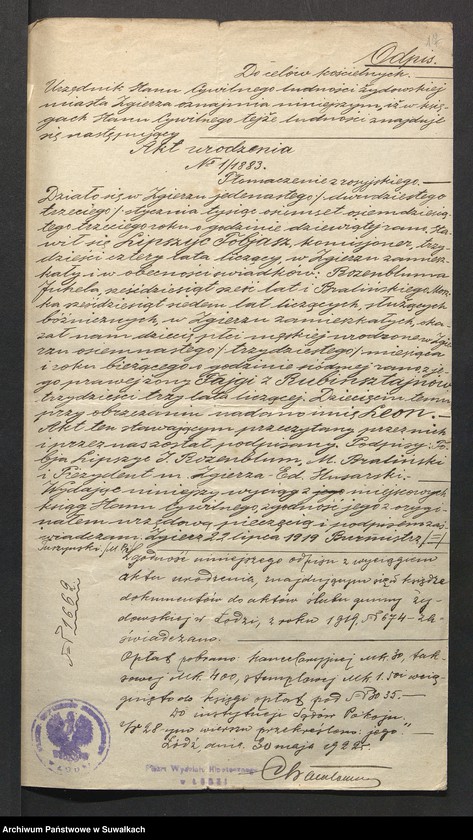 Odpis.
Do celów kościelnych.
Urzędnik Stanu Cywilnego ludności żydowskiej
miasta Zgierza oznajmia niniejszym, iż w księ-
gach Stanu Cywilnego tejże ludności znajduje
się następujący
Akt urodzenia
№ 1/1883.
Tłumaczenie z rosyjskiego.
Działo się w Zgierzu jedenastego /dwudziestego
trzeciego/ stycznia tysiąc osiemset osiemdziesią-
tego trzeciego roku o godzinie dziewiątej rano. Sta-
wił się Lipszyc Tobjasz, komisjoner, trzy-
dzieści cztery lata liczący, w Zgierzu zamiesz-
kały i w obecności świadków: Rozenbluma
sześćdziesiąt sześć lat i Bralińskiego
sześćdziesiąt siedem lat liczących, służących
bóżnicznych, w Zgierzu zamieszkałych, oka-
zał nam dziecię płci męskiej urodzone w Zgie-
rzu osiemnastego /trzydziestego/ miesiąca
i roku bieżącego o godzinie siódmej rano z je-
go prawej żony Fajgi z Rubinsztajnów
trzydzieści trzy lata liczącej. Dziecięciu temu
przy obrzezaniu nadano imię Leon. -
Akt ten stawającym przeczytany przez nich
i przez nas został podpisany. Podpisy: To-
bja Lipszyc J. Rozenblum, M. Braliński
i Prezydent m. Zgierza Ed. Husarski. -
Wydając niniejszy wyciąg z miejscowych
ksiąg Stanu Cywilnego zgodność jego z orygi-
nałem urzędową pieczęcią i podpisem za-
świadczam. Zgierz 27 lipca 1919 Burmistrz
Zgodność niniejszego odpisu z wyciągiem
aktu urodzenia, znajdującym się w księdze
dokumentów do aktów ślubu gminy ży-
dowskiej w Łodzi, z roku 1919, № 674 - za-
świadczono.
№ 1669
Opłat pobrano kancelaryjnej Mk. 30, tak-
sowej Mk. 400, stemplowej Mk. 1.50 i wcią-
gnięto do księgi opłat pod № 3035. -
Do instytucji Sądów Pokoju."
W 28-ym wierszu przekreślono: "jego". -
Łódź, dnia 30 maja 1922 r.
Archiwum Państwowe w Suwałkach